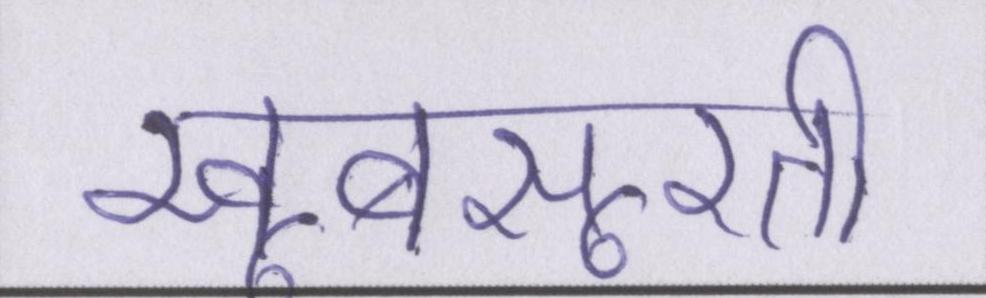 खूबसूरती